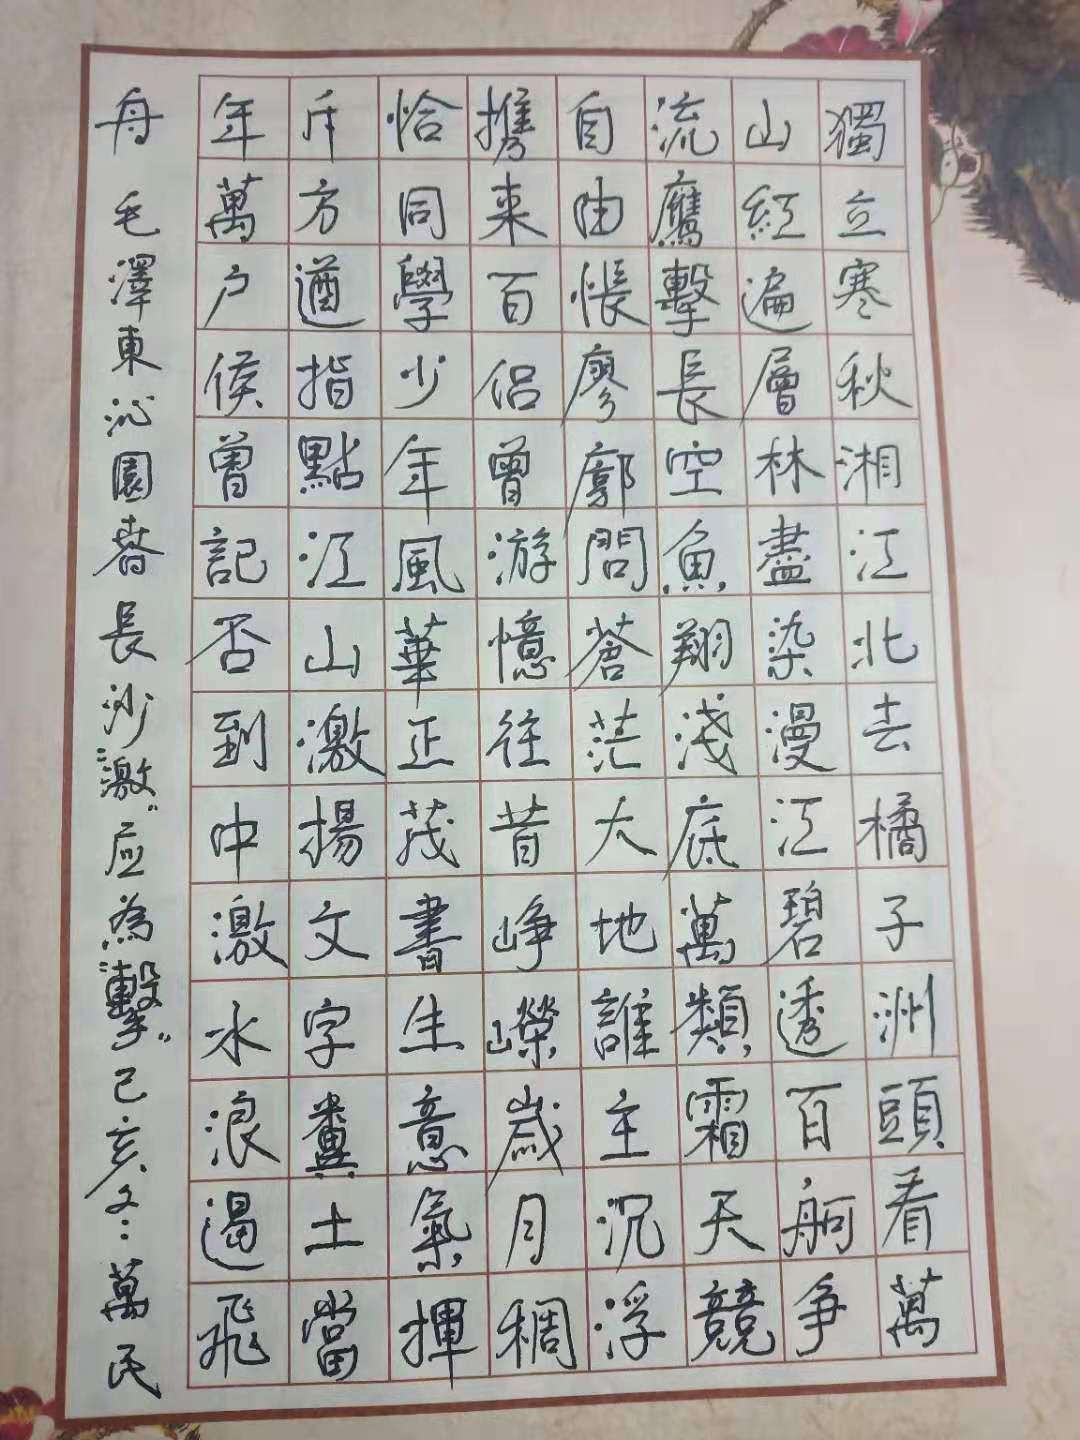 獨立寒秋湘江北去橘子洲頭看萬
山紅遍層林盡染漫江碧透百舸争
流鷹擊長空魚翔淺底萬類霜天競
自由悵廖廓問蒼茫大地誰主沉浮
攜来百侣曾游憶往昔崢嶸歲月稠
恰同學少年風華正茂書生意氣揮
斥方遒指點江山激揚文字糞土當
年萬户侯曾記否到中激水浪遏飛
舟 毛澤東沁園春長沙"激"应為"擊"己亥冬萬民